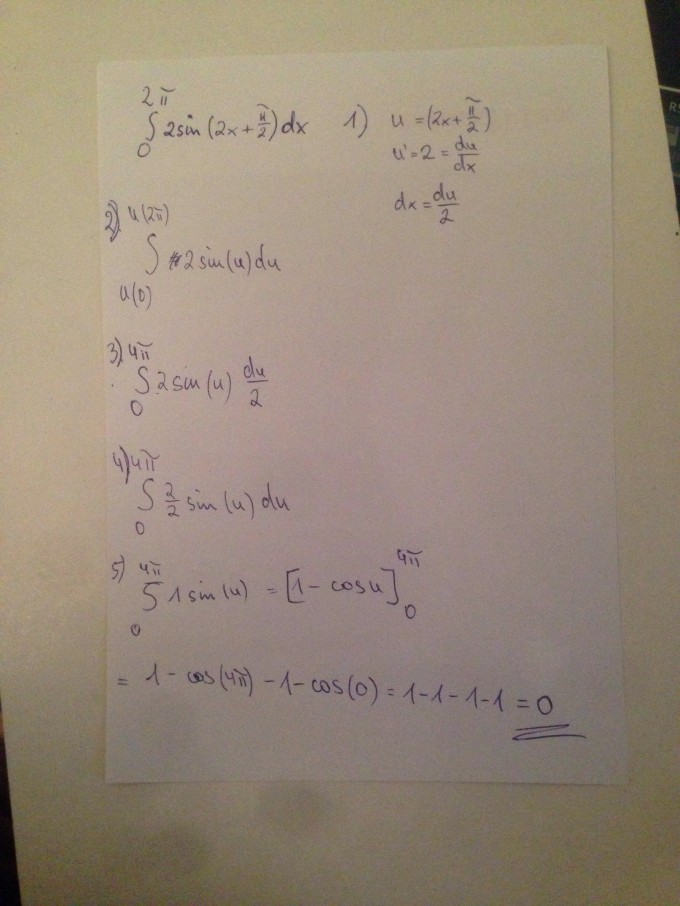 2π
∫ 2sin (2x + π/2) dx 1) u = (2x + π/2)
0
u' = 2 = du/dx
dx = du/2
2) u(2π)
∫ 2 sin(u) du
u(0)
3) 4π
∫ 2 sin (u) du/2
0
4) 4π
∫ 2/2 sin (u) du
0
5) 4π
∫ 1 sin (u) = [1 - cos u] 4π 0
0
= 1 - cos(4π) - 1 - cos(0) = 1-1-1-1 = 0